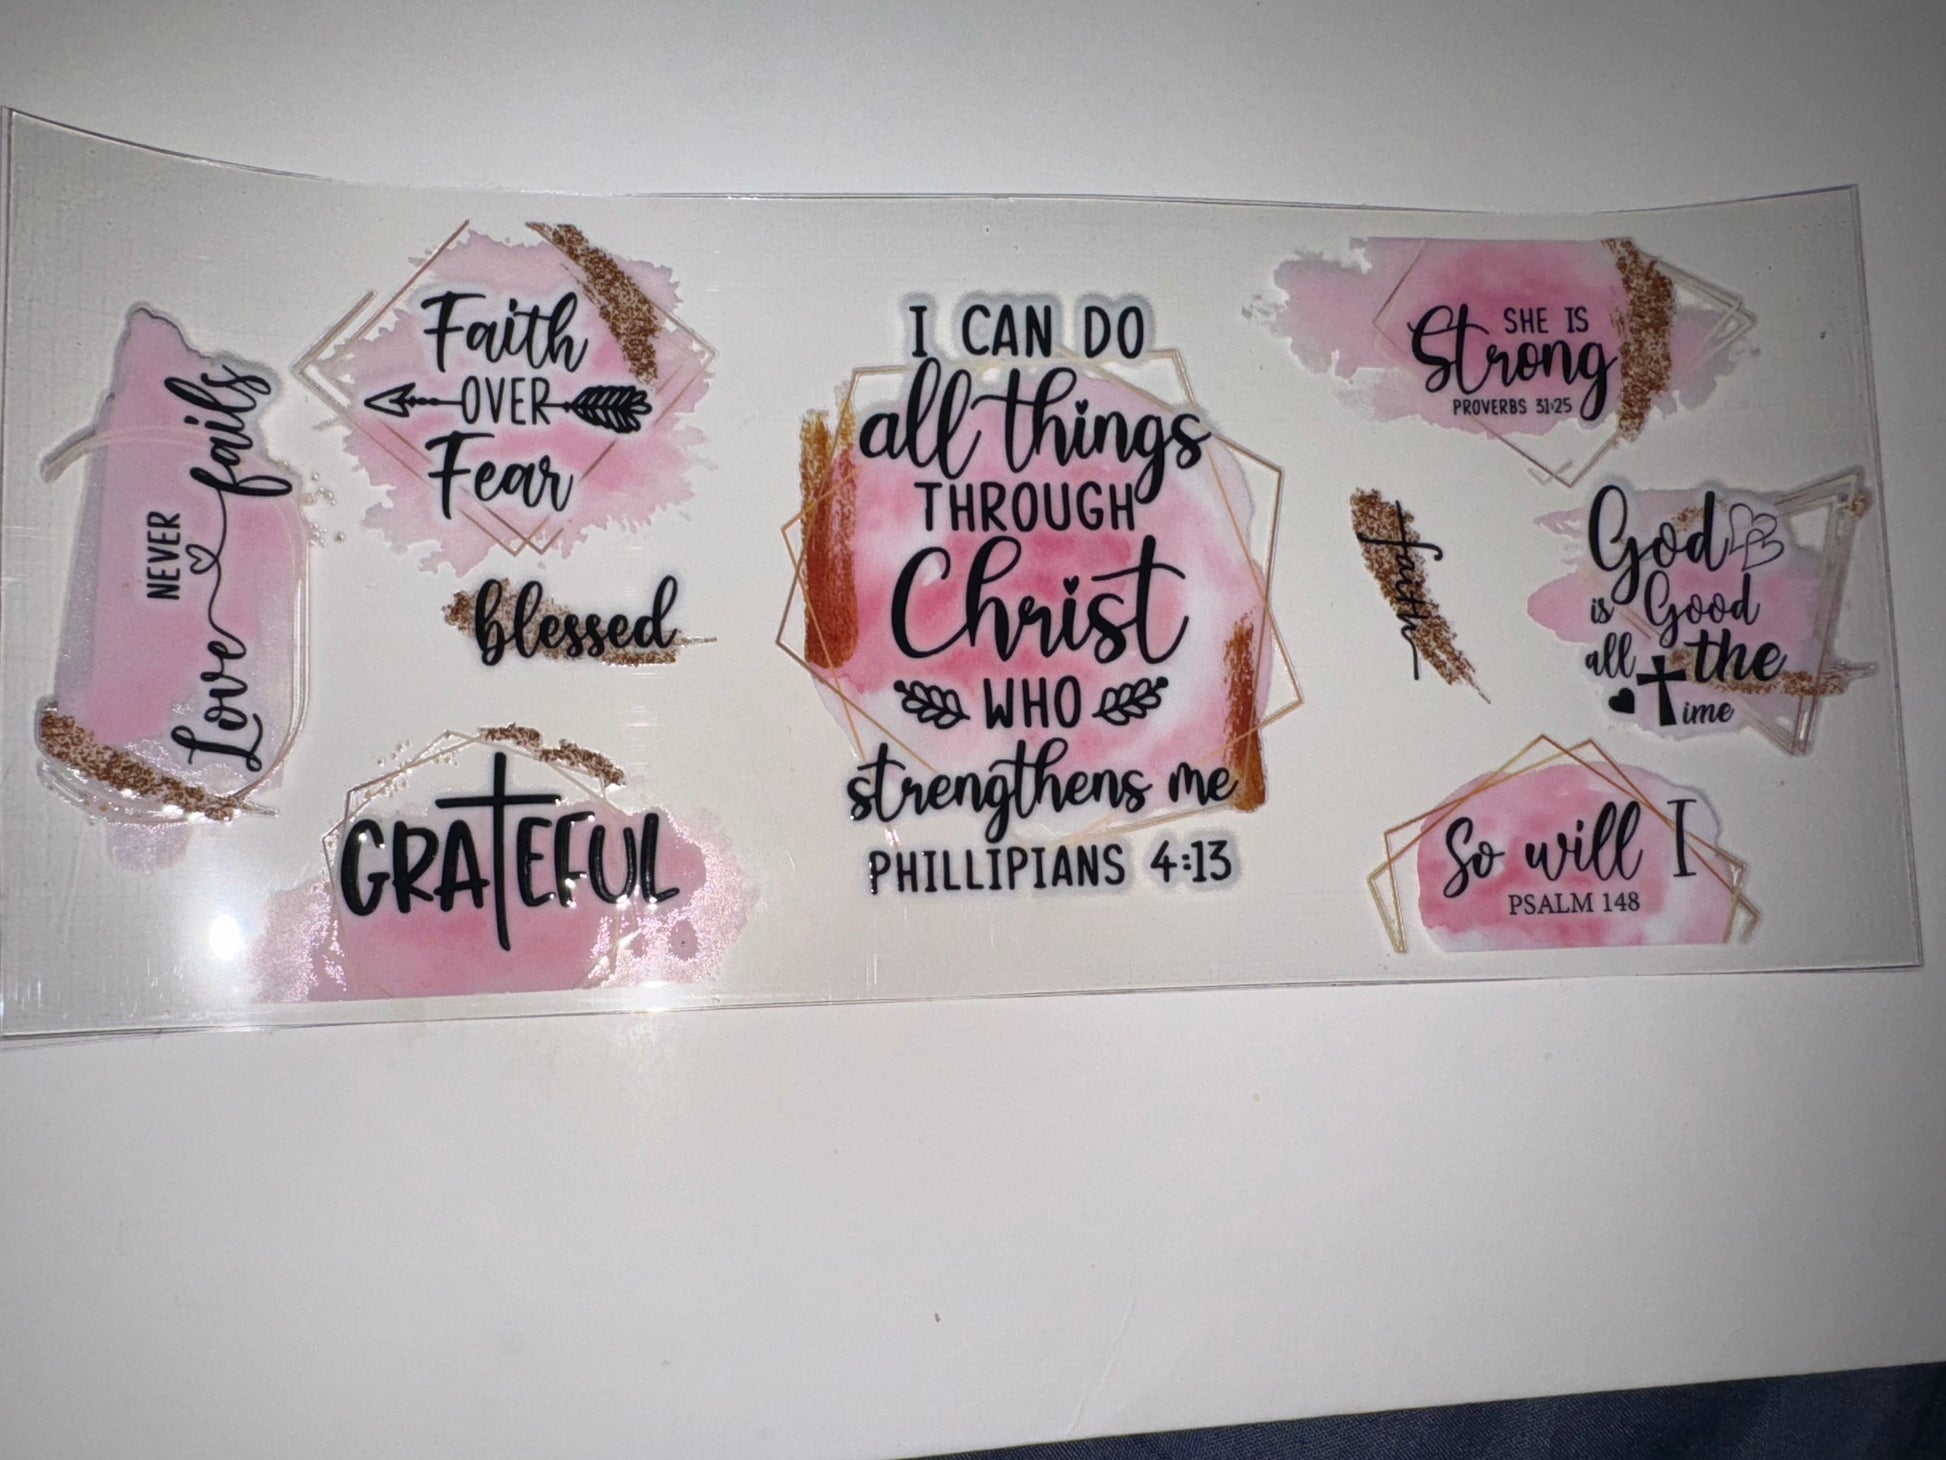 Love
NEVER
fails
Faith
OVER
Fear
blessed
GRATEFUL
I CAN DO
all things
THROUGH
Christ
WHO
strengthens me
PHILLIPIANS 4:13
SHE IS
Strong
PROVERBS 31:25
faith
God
is Good
all the
time
So will I
PSALM 148